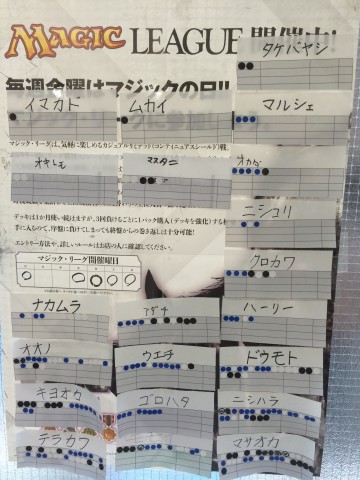 MAGIC LEAGUE 開催中!
タケバヤシ
毎週金曜はマジックの日!!
イマカド
ムカイ
マルシェ
オキトモ
マスタニ
オカダ
ニシコリ
デッキは1か月使い続けますが、3回負けるごとに1パック購入(デッキを強化)する
手に入るので、序盤に負けてしまっても終盤からの巻き返しは十分可能!
エントリー方法や、詳しいルールはお店の人に確認してください。
クロカワ
マジック・リーグ開催曜日
ナカムラ
アダチ
ハーリー
オオノ
ウエチ
ドウモト
キヨオカ
ゴロハタ
ニシハラ
テラカワ
マサオカ